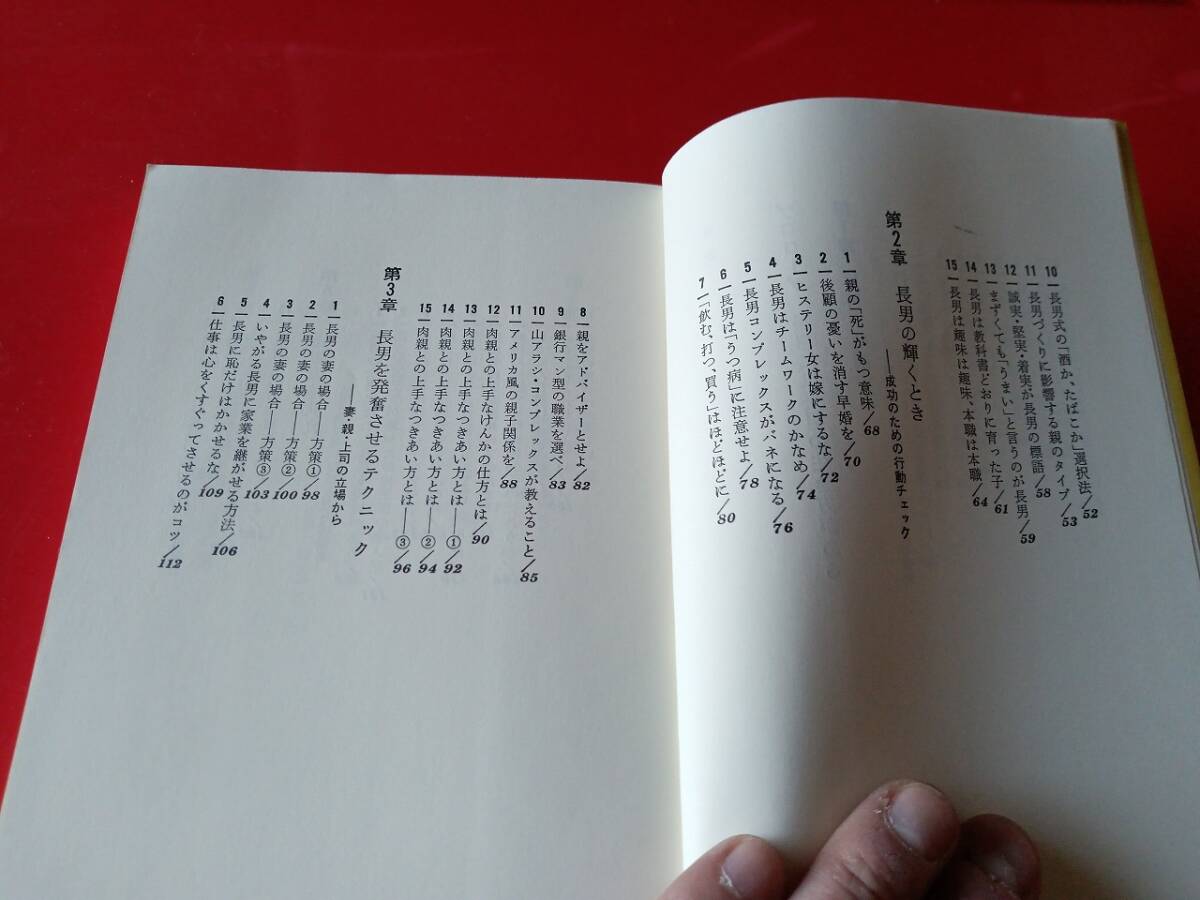 10 長男式の「酒か、たばこか」選択法/52
11 長男づくりに影響する親のタイプ/53
12 誠実・堅実・着実が長男の標語/58
13 まずくても「うまい」と言うのが長男/59
14 長男は教科書どおりに育った子/61
15 長男は趣味は趣味、本職は本職/64
第2章 長男の輝くとき
——成功のための行動チェック
1 親の「死」がもつ意味/68
2 後顧の憂いを消す早婚を/70
3 ヒステリー女は嫁にするな/72
4 長男はチームワークのかなめ/74
5 長男コンプレックスがバネになる/76
6 長男は「うつ病」に注意せよ/78
7 「飲む、打つ、買う」はほどほどに/80
8 親をアドバイザーとせよ/82
9 銀行マン型の職業を選べ/83
10 山アラシ・コンプレックスが教えること/85
11 アメリカ風の親子関係を/88
12 肉親との上手なけんかの仕方とは/90
13 肉親との上手なつきあい方とは——①/92
14 肉親との上手なつきあい方とは——②/94
15 肉親との上手なつきあい方とは——③/96
第3章 長男を発奮させるテクニック
——妻・親・上司の立場から
1 長男の妻の場合——方策①/98
2 長男の妻の場合——方策②/100
3 長男の妻の場合——方策③/103
4 いやがる長男に家業を継がせる方法/106
5 長男に恥だけはかかせるな/109
6 仕事は心をくすぐってさせるのがコツ/112